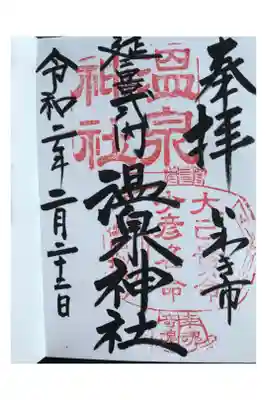 奉拝
いわき市
延喜式内
温泉神社
令和二年二月二十二日
温泉
神社
大己貴命
少彦名命